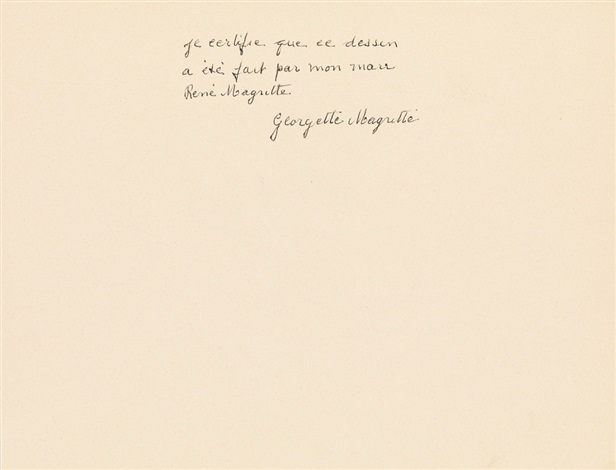 je certifie que ce dessin
a été fait par mon mari
René Magritte
Georgette Magritte